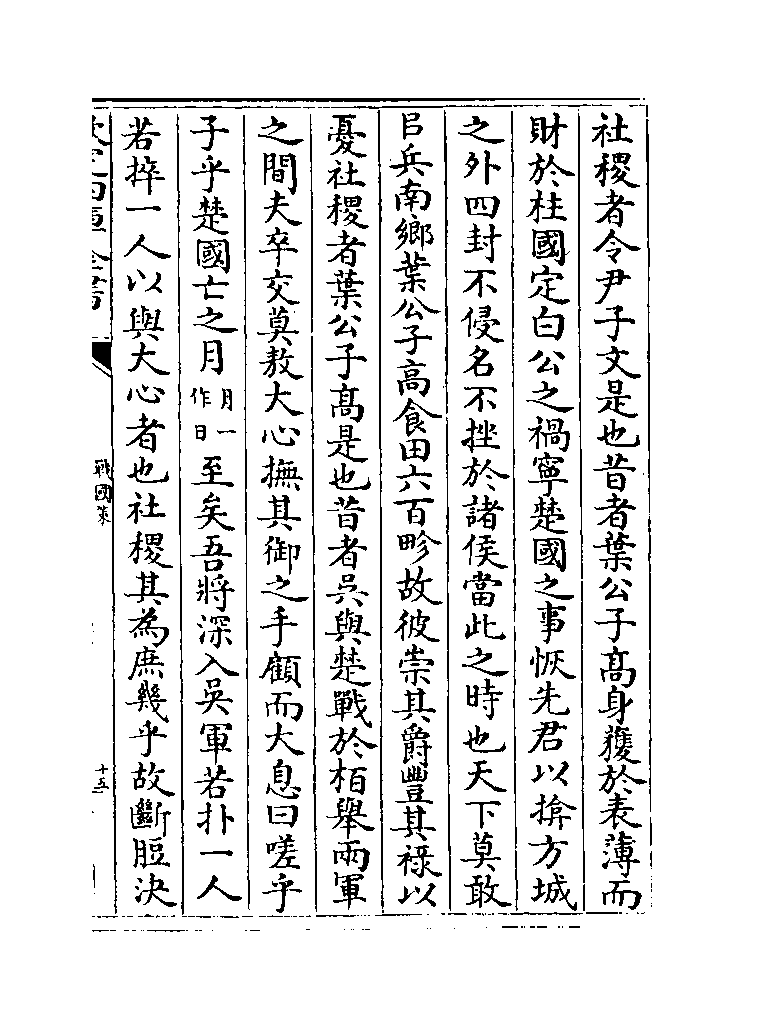 社稷者令尹子文是也昔者葉公子髙身獲於表薄而
財於柱國定白公之禍寧楚國之事恢先君以揜方城
之外四封不侵名不挫於諸侯當此之時也天下莫敢
㠯兵南鄉葉公子高食田六百畛故彼崇其爵豐其禄以
憂社稷者葉公子髙是也昔者吳與楚戰於栢舉兩軍
之間夫卒交莫敖大心撫其御之手顧而大息曰嗟乎
子乎楚國亡之月月一作日至矣吾將深入吳軍若扑一人
若捽一人以與大心者也社稷其為庶幾乎故斷脰決
欽定四庫全書
戰國策
十五